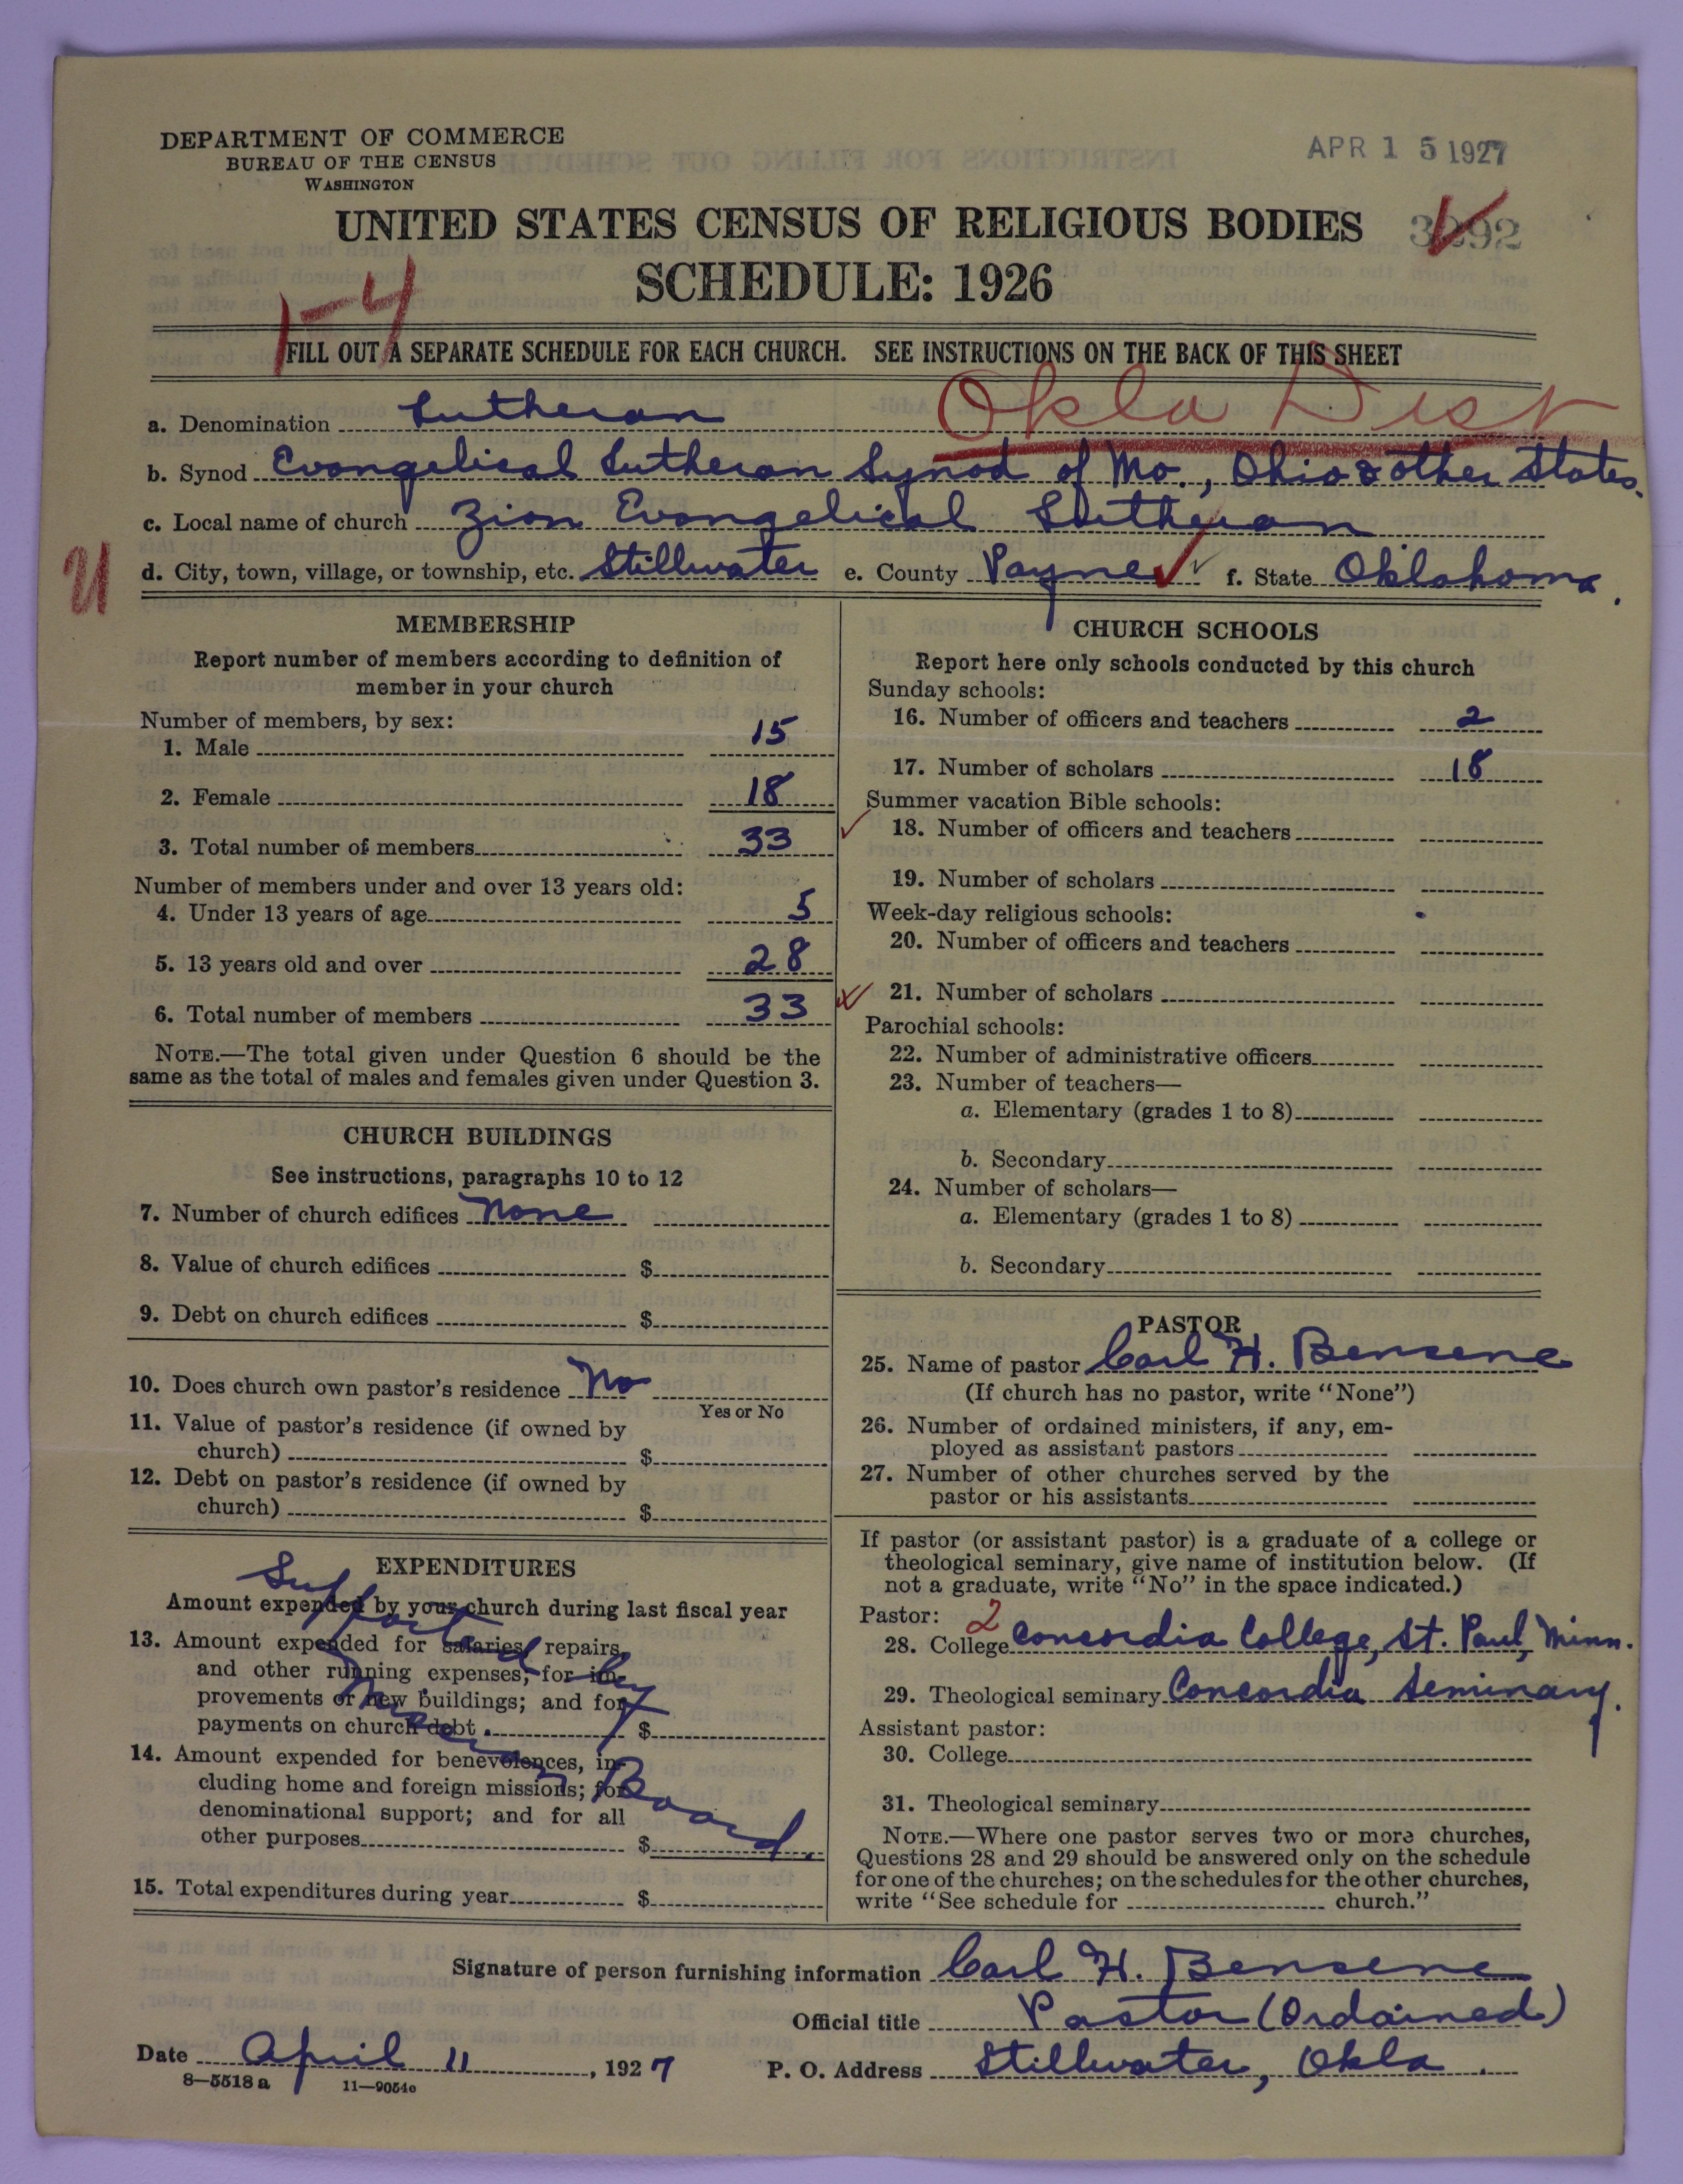 DEPARTMENT OF COMMERCE
BUREAU OF THE CENSUS
WASHINGTON
APR 15 1927
UNITED STATES CENSUS OF RELIGIOUS BODIES
3292
SCHEDULE: 1926
1-4
FILL OUT A SEPARATE SCHEDULE FOR EACH CHURCH. SEE INSTRUCTIONS ON THE BACK OF THIS SHEET
Okla Dist
a. Denomination Lutheran
b. Synod Evangelical Lutheran Synod of Mo., Ohio & other States.
c. Local name of church Zion Evangelical Lutheran
U
d. City, town, village, or township, etc. Stillwater e. County Payne f. State Oklahoma.
MEMBERSHIP
Report number of members according to definition of
member in your church
Number of members, by sex:
1. Male 15
2. Female 18
3. Total number of members 33
Number of members under and over 13 years old:
4. Under 13 years of age 5
5. 13 years old and over 28
6. Total number of members 33
NOTE.—The total given under Question 6 should be the
same as the total of males and females given under Question 3.
CHURCH BUILDINGS
See instructions, paragraphs 10 to 12
7. Number of church edifices None
8. Value of church edifices $
9. Debt on church edifices $
10. Does church own pastor's residence No
Yes or No
11. Value of pastor's residence (if owned by
church) $
12. Debt on pastor's residence (if owned by
church) $
EXPENDITURES
Amount expended by your church during last fiscal year
13. Amount expended for salaries, repairs,
and other running expenses; for im-
provements or new buildings; and for
payments on church debt $
14. Amount expended for benevolences, in-
cluding home and foreign missions; for
denominational support; and for all
other purposes $
15. Total expenditures during year $
Supported by Mission Board.
CHURCH SCHOOLS
Report here only schools conducted by this church
Sunday schools:
16. Number of officers and teachers 2
17. Number of scholars 18
Summer vacation Bible schools:
18. Number of officers and teachers
19. Number of scholars
Week-day religious schools:
20. Number of officers and teachers
21. Number of scholars
Parochial schools:
22. Number of administrative officers
23. Number of teachers—
a. Elementary (grades 1 to 8)
b. Secondary
24. Number of scholars—
a. Elementary (grades 1 to 8)
b. Secondary
PASTOR
25. Name of pastor Carl H. Bensene
(If church has no pastor, write "None")
26. Number of ordained ministers, if any, em-
ployed as assistant pastors
27. Number of other churches served by the
pastor or his assistants
If pastor (or assistant pastor) is a graduate of a college or
theological seminary, give name of institution below. (If
not a graduate, write "No" in the space indicated.)
Pastor: 2
28. College Concordia College, St. Paul, Minn.
29. Theological seminary Concordia Seminary.
Assistant pastor:
30. College
31. Theological seminary
NOTE.—Where one pastor serves two or more churches,
Questions 28 and 29 should be answered only on the schedule
for one of the churches; on the schedules for the other churches,
write "See schedule for church."
Signature of person furnishing information Carl H. Bensene
Official title Pastor (Ordained)
Date April 11, 1927 P. O. Address Stillwater, Okla.
8—5518a 11—9054c